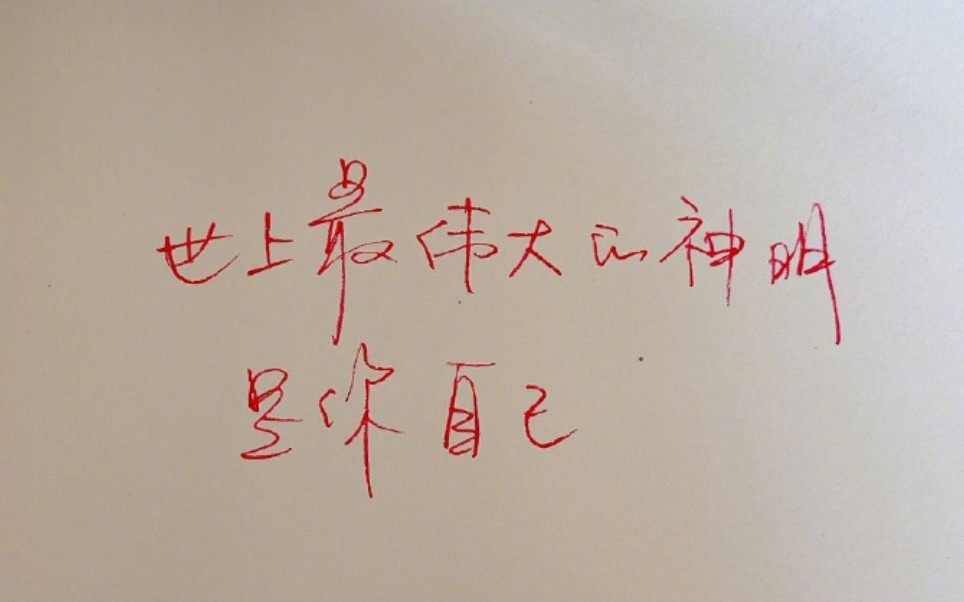 世上最伟大的神明
是你自己